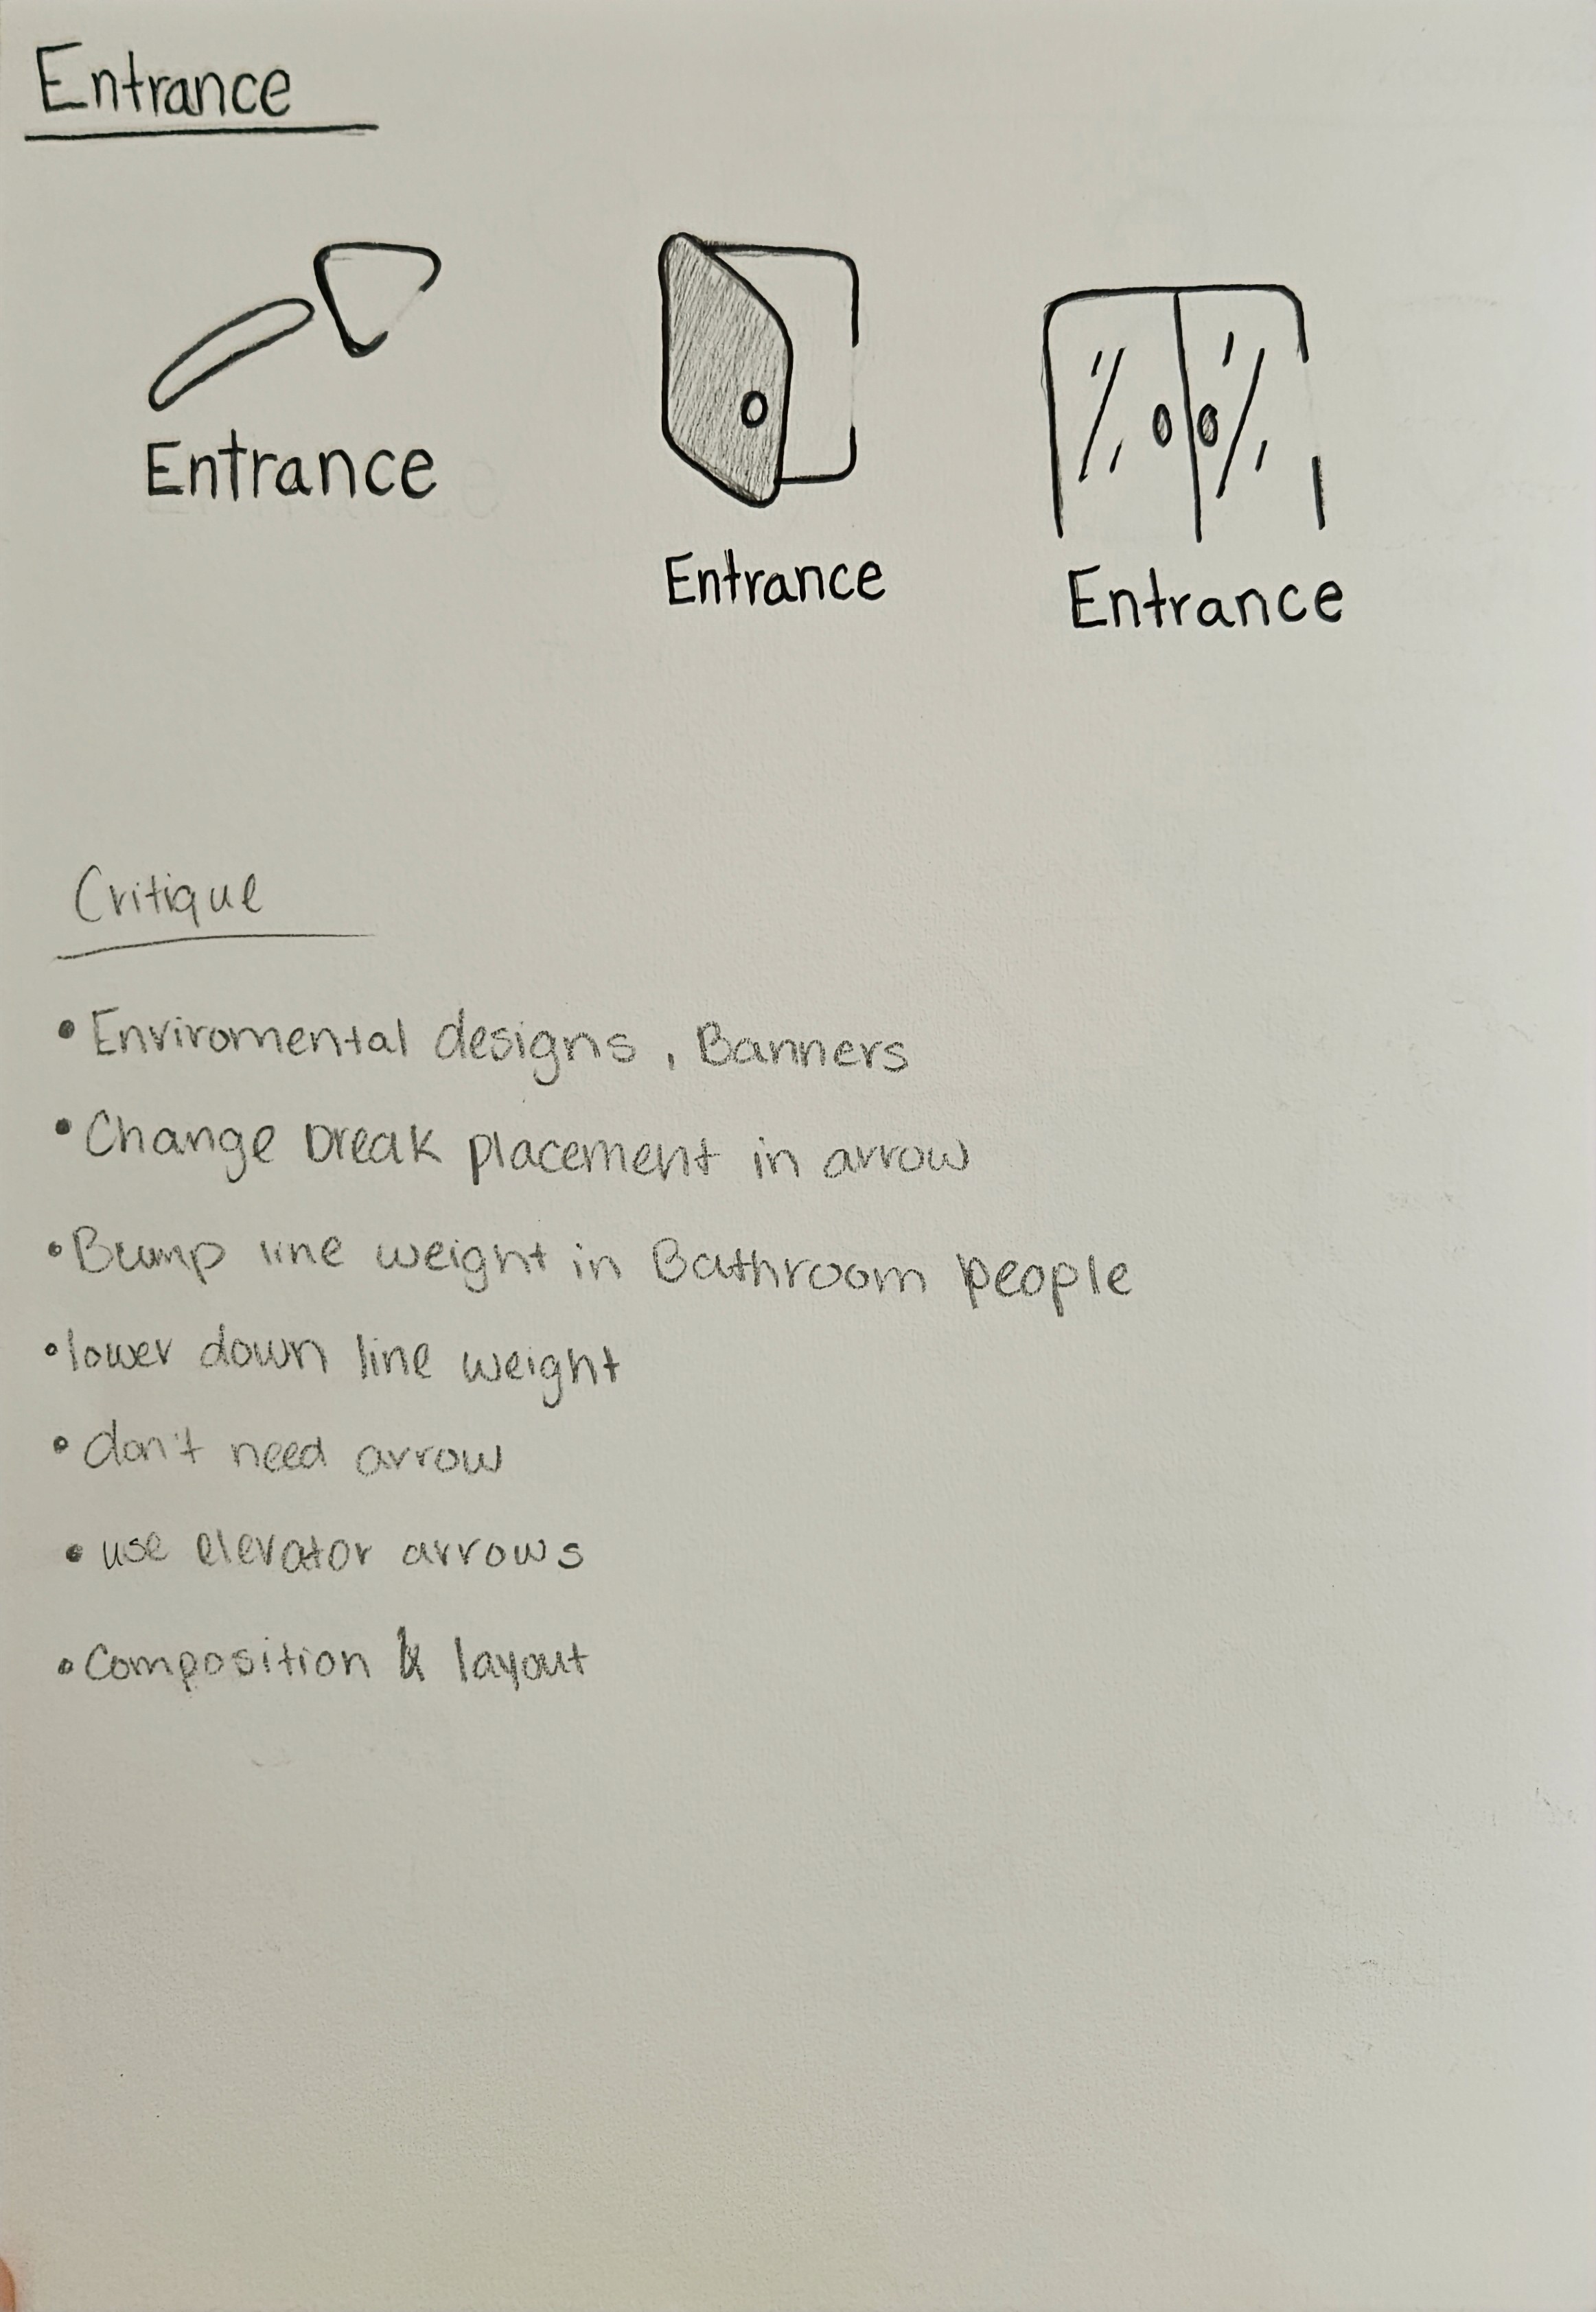 Entrance
Entrance
Entrance
Entrance
Critique
• Enviromental designs, Banners
• Change break placement in arrow
• Bump line weight in Bathroom people
• lower down line weight
• don't need arrow
• use elevator arrows
• Composition & layout